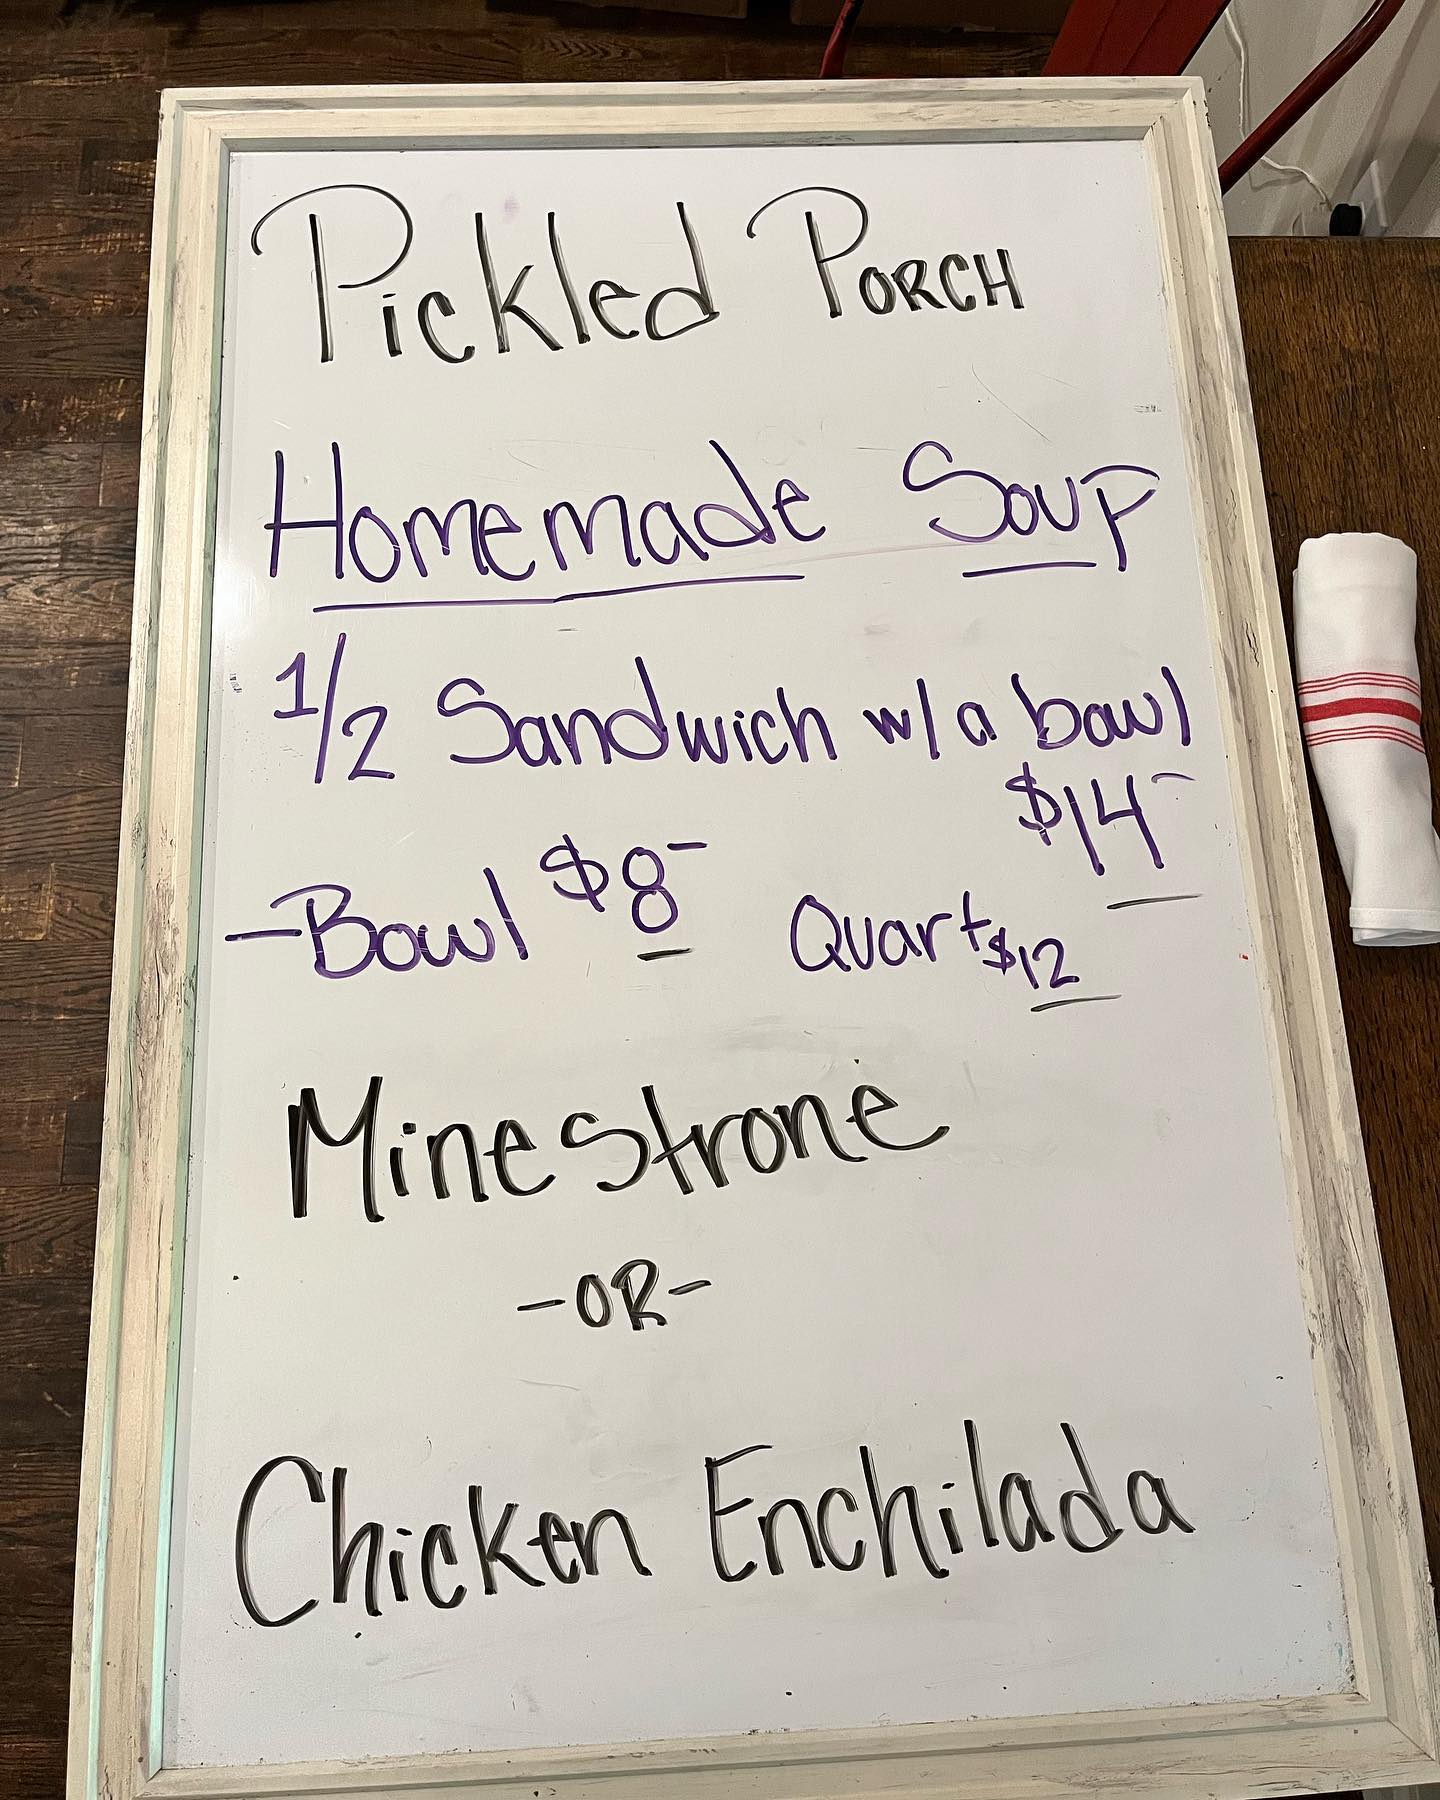 Pickled PORCH
Homemade Soup
1/2 Sandwich w/ a bowl
$14-
-Bowl $8- Quart $12
Minestrone
-OR-
Chicken Enchilada